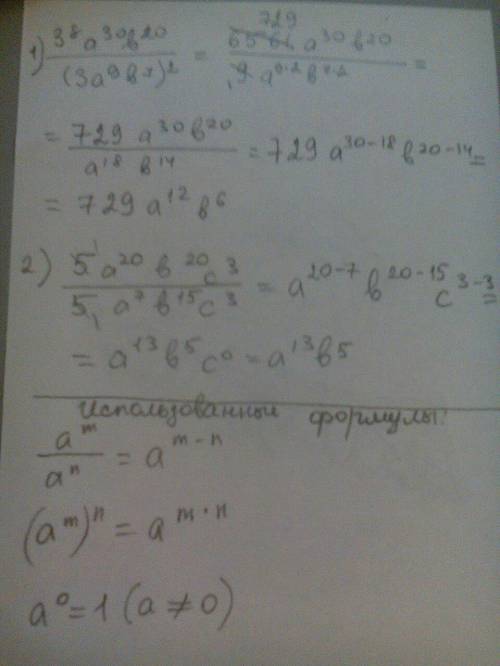 729
1) 3⁸a³⁰в²⁰ / (3a⁹в⁷)² = 6561 a³⁰в²⁰ / 9 a⁹·²в⁷·² =
= 729 a³⁰в²⁰ / a¹⁸ в¹⁴ = 729 a³⁰⁻¹⁸ в²⁰⁻¹⁴ =
= 729 a¹² в⁶
2) 5¹ a²⁰ в²⁰ c³ / 5₁ a⁷ в¹⁵ c³ = a²⁰⁻⁷ в²⁰⁻¹⁵ c³⁻³ =
= a¹³ в⁵ c⁰ = a¹³ в⁵
Использованные формулы:
aᵐ / aⁿ = aᵐ⁻ⁿ
(aᵐ)ⁿ = aᵐ·ⁿ
a⁰ = 1 (a ≠ 0)